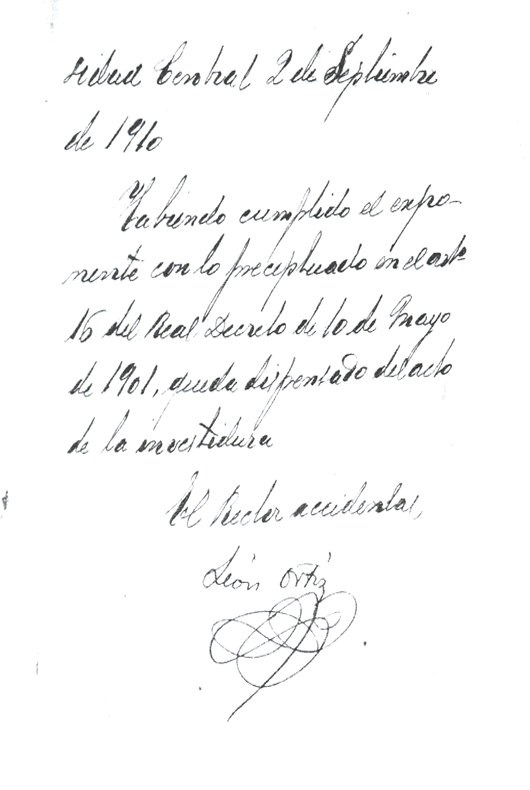 sidad Central 2 de Septiembre
de 1910
Habiendo cumplido el expo-
nente con lo preceptuado en el artº
16 del Real Decreto de 10 de Mayo
de 1901, queda dispensado del acto
de la investidura
El Rector accidental,
León Ortiz